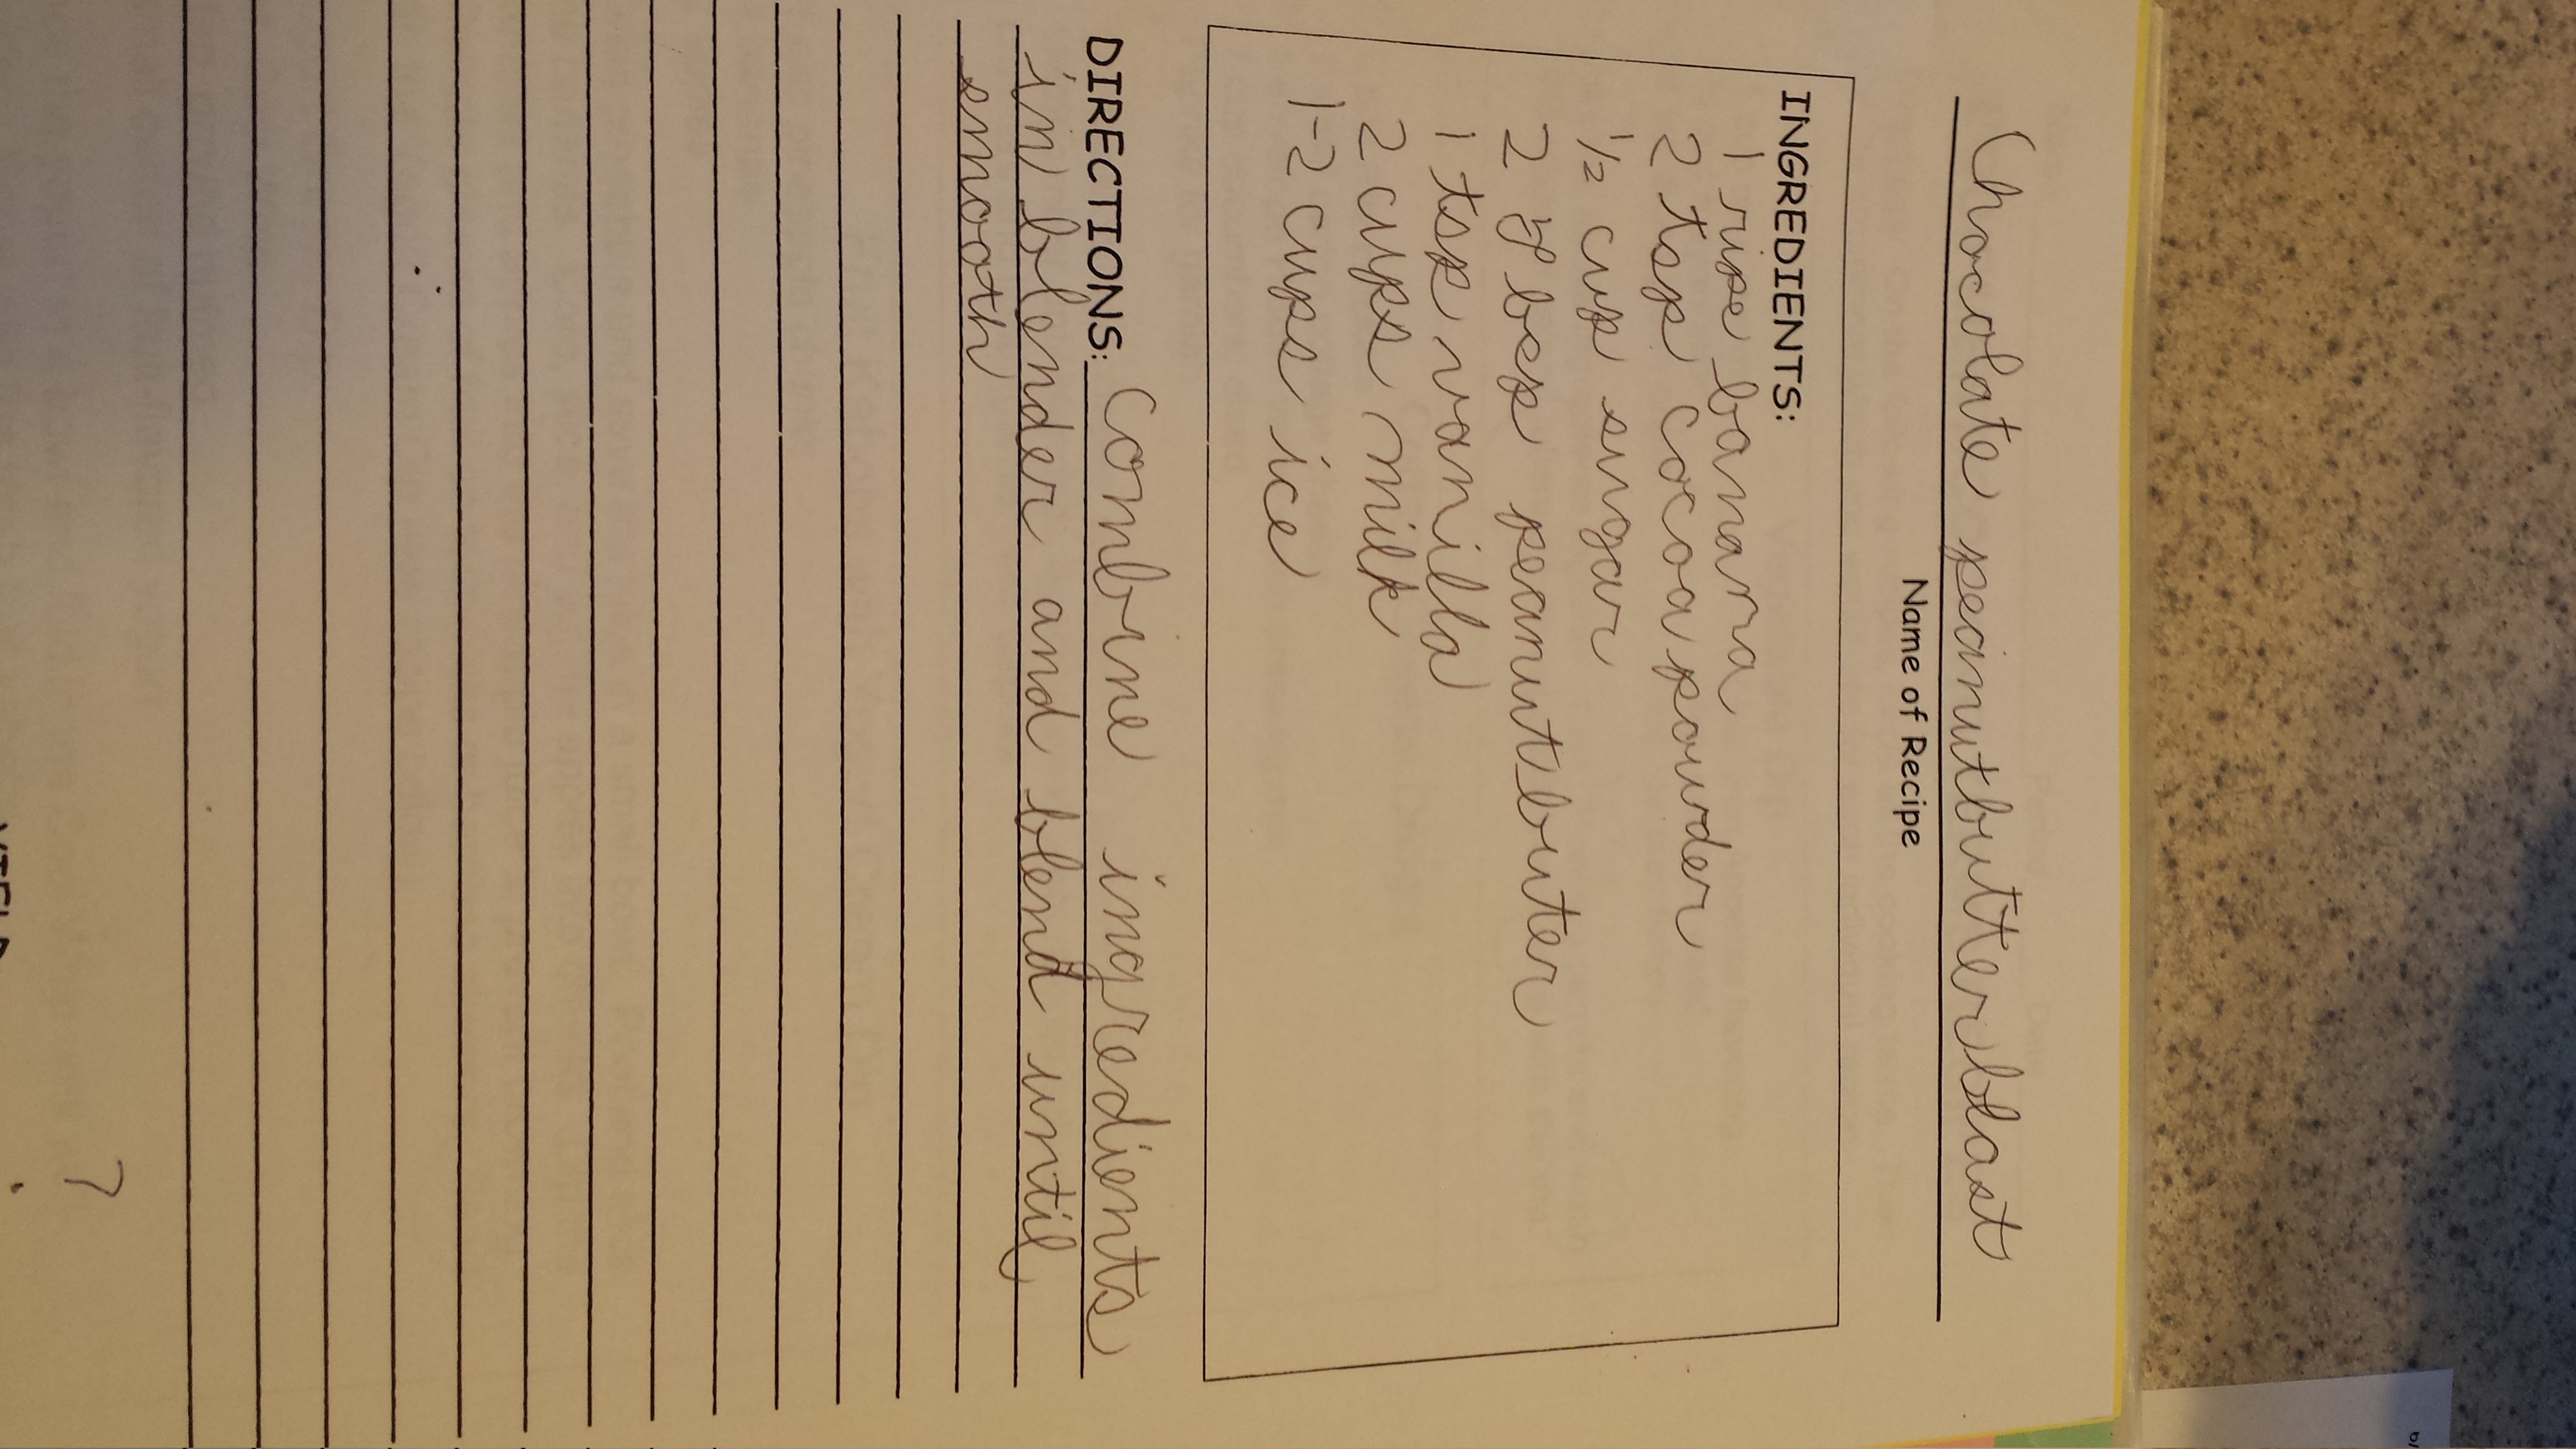 Chocolate peanutbutter blast
Name of Recipe
INGREDIENTS:
1 ripe banana
2 tsp cocoa powder
1/2 cup sugar
2 bsp peanutbutter
1 tsp vanilla
2 cups milk
1-2 cups ice
DIRECTIONS: Combine ingredients
in blender and blend until
smooth
?